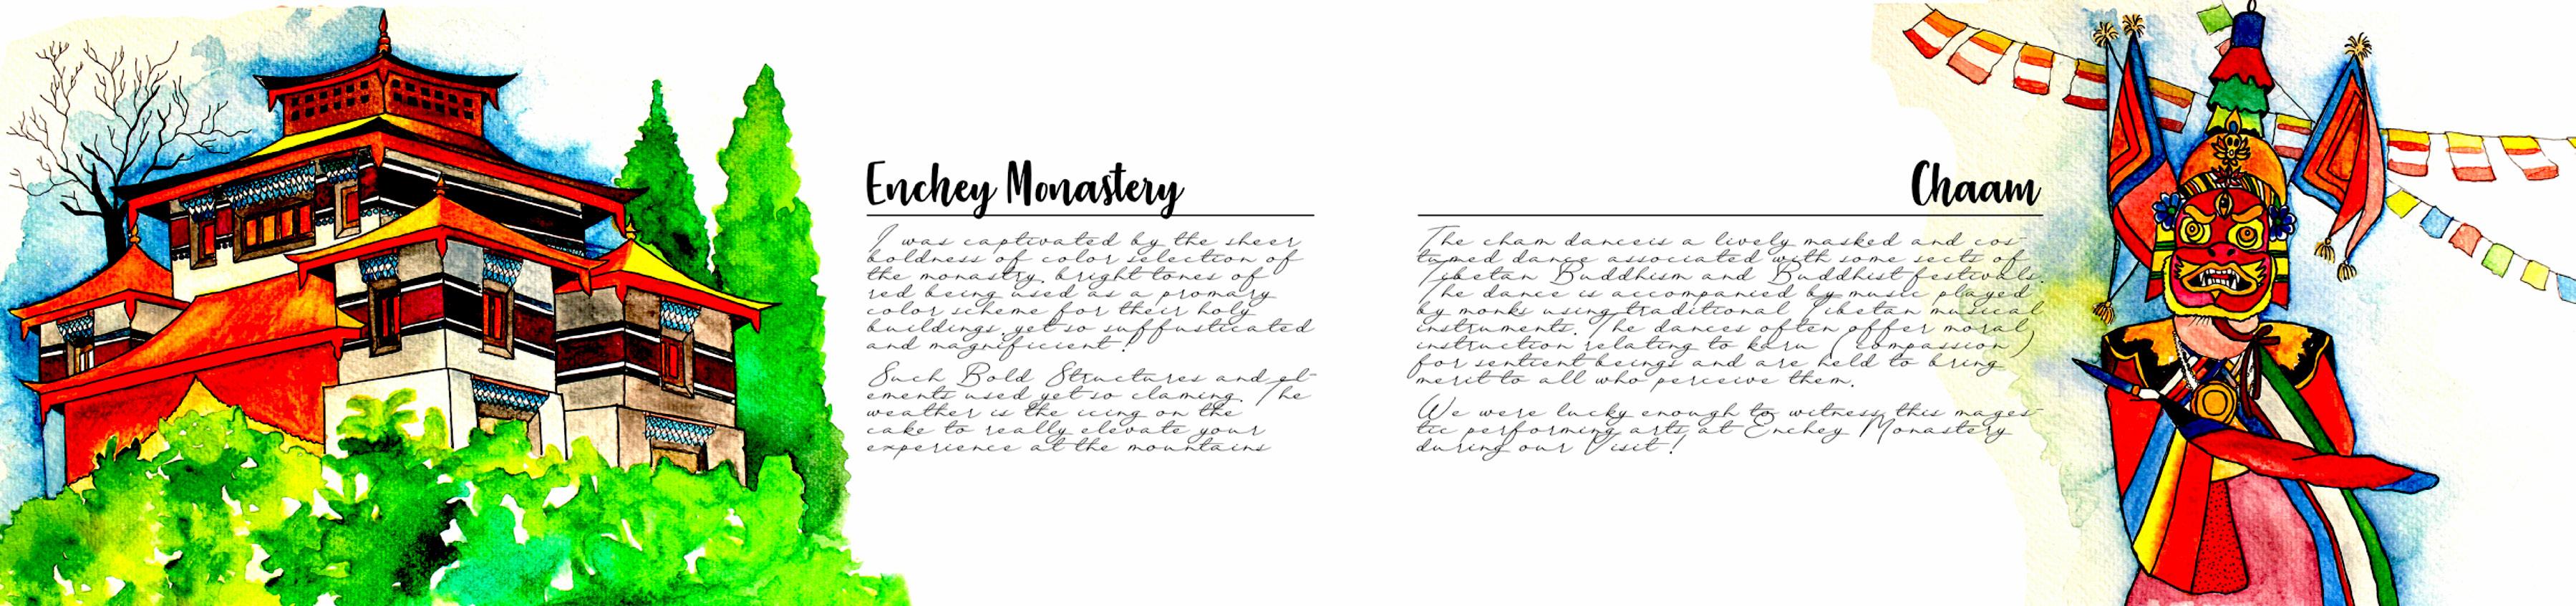 Enchey Monastery
I was captivated by the sheer
boldness of color selection of
the monastry, bright tones of
red being used as a promary
color scheme for their holy
buildings, yet so suffusticated
and magnificient !
Such Bold Structures and el-
ements used yet so claming. The
weather is the icing on the
cake to really elevate your
experience at the mountains
Chaam
The cham danceis a lively masked and cos-
tumed dance associated with some sects of
Tibetan Buddhism and Buddhist festivals.
The dance is accompanied by music played
by monks using traditional Tibetan musical
instruments. The dances often offer moral
instruction relating to karu (compassion)
for sentient beings and are held to bring
merit to all who perceive them.
We were lucky enough to witness this mages-
tic performing arts at Enchey Monastery
during our Visit !